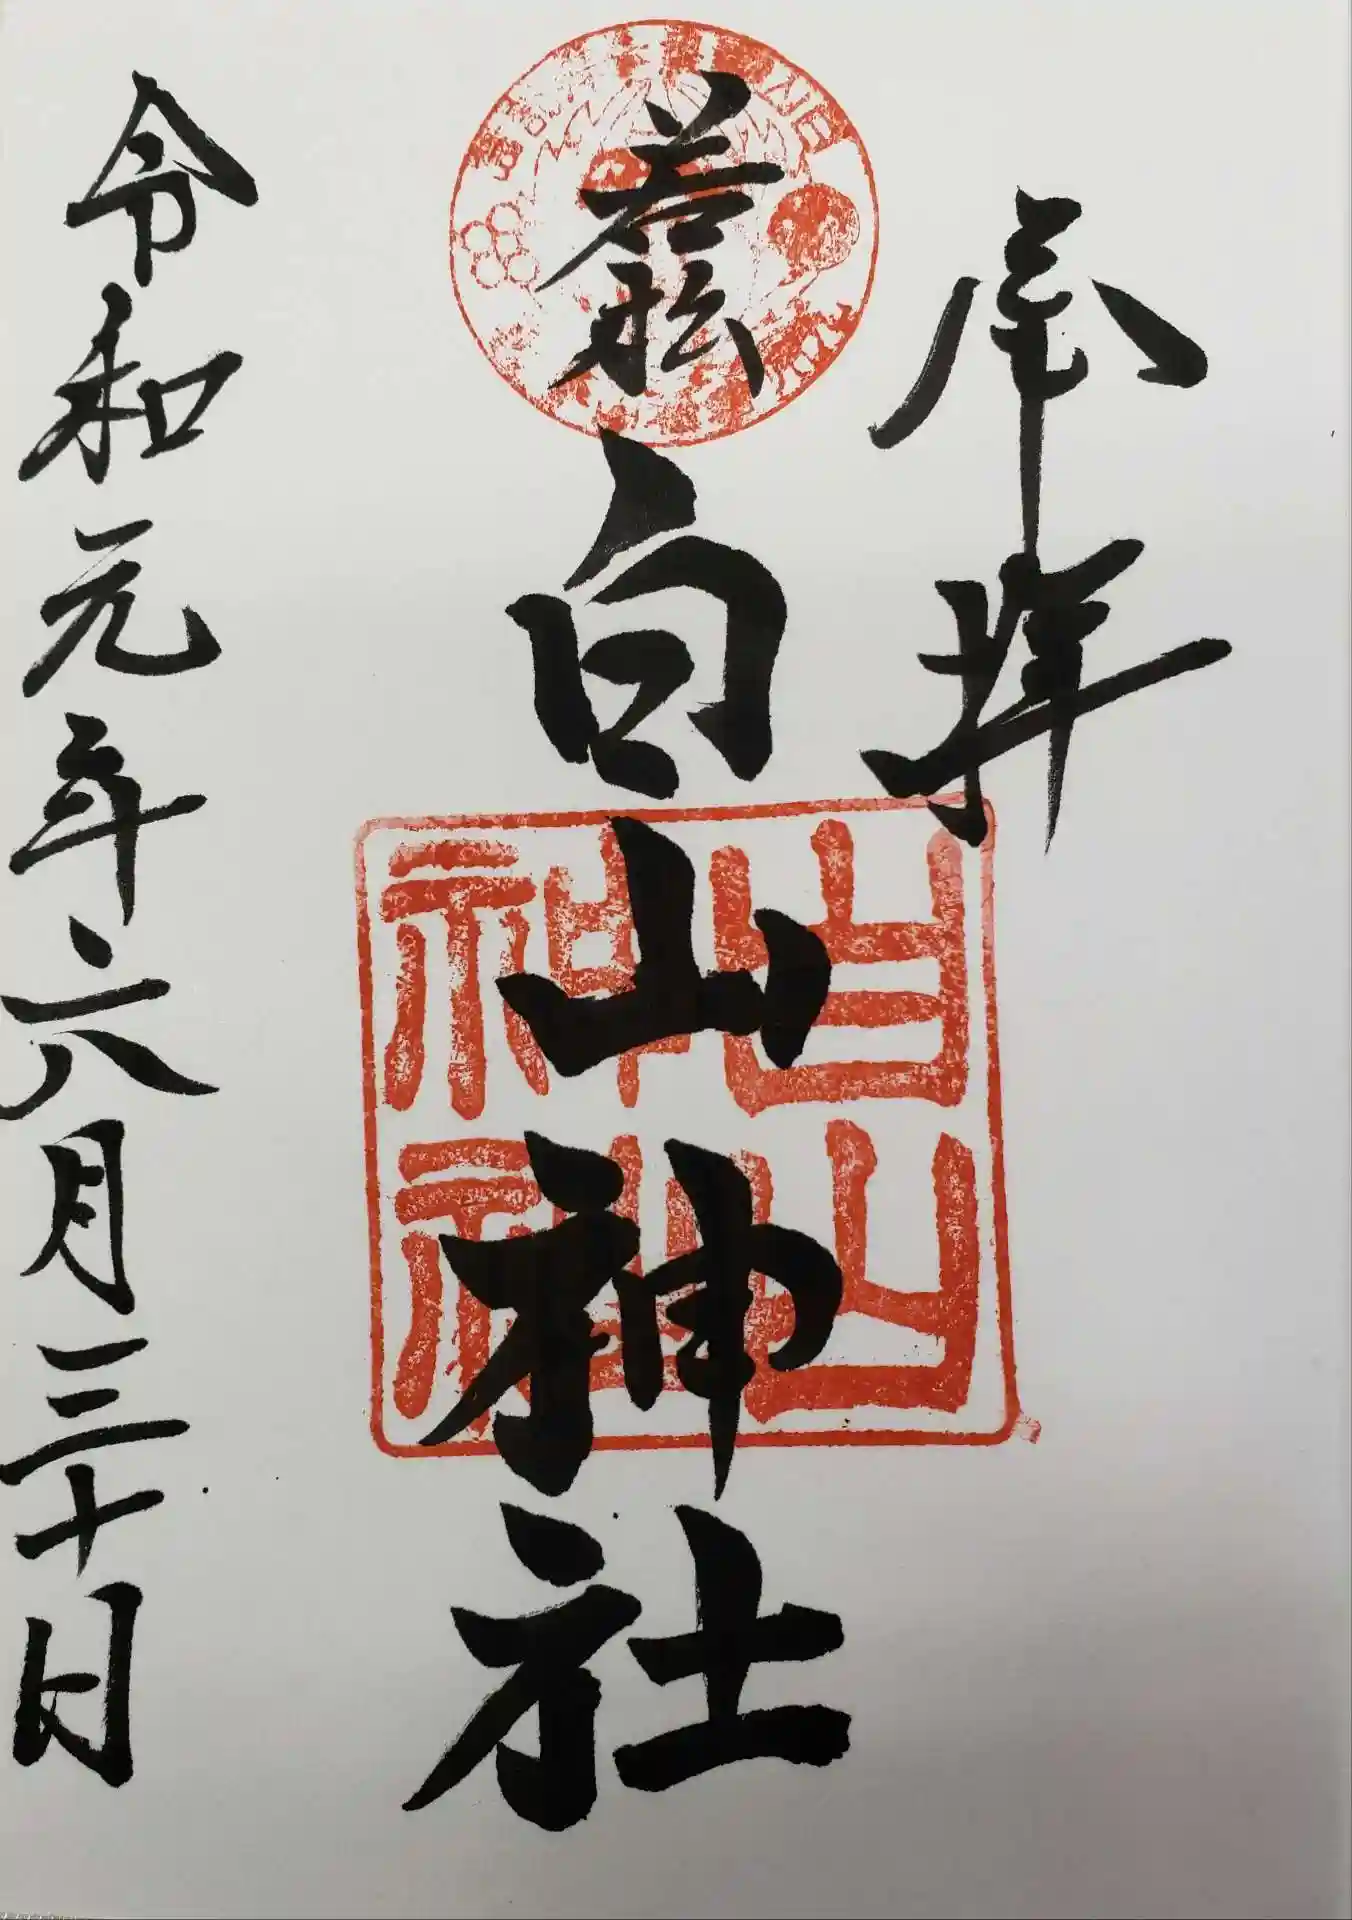 奉拝
若松
白山神社
白山神社
令和元年六月三十日